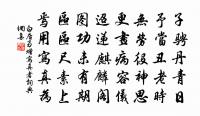 子騁丹青日
予當丑老時
無勞役神思
更畫病容儀
迢遞麒麟閣
圖功未有期
區區尺素上
焉用寫真為
白居易贈寫真者詞典
網書